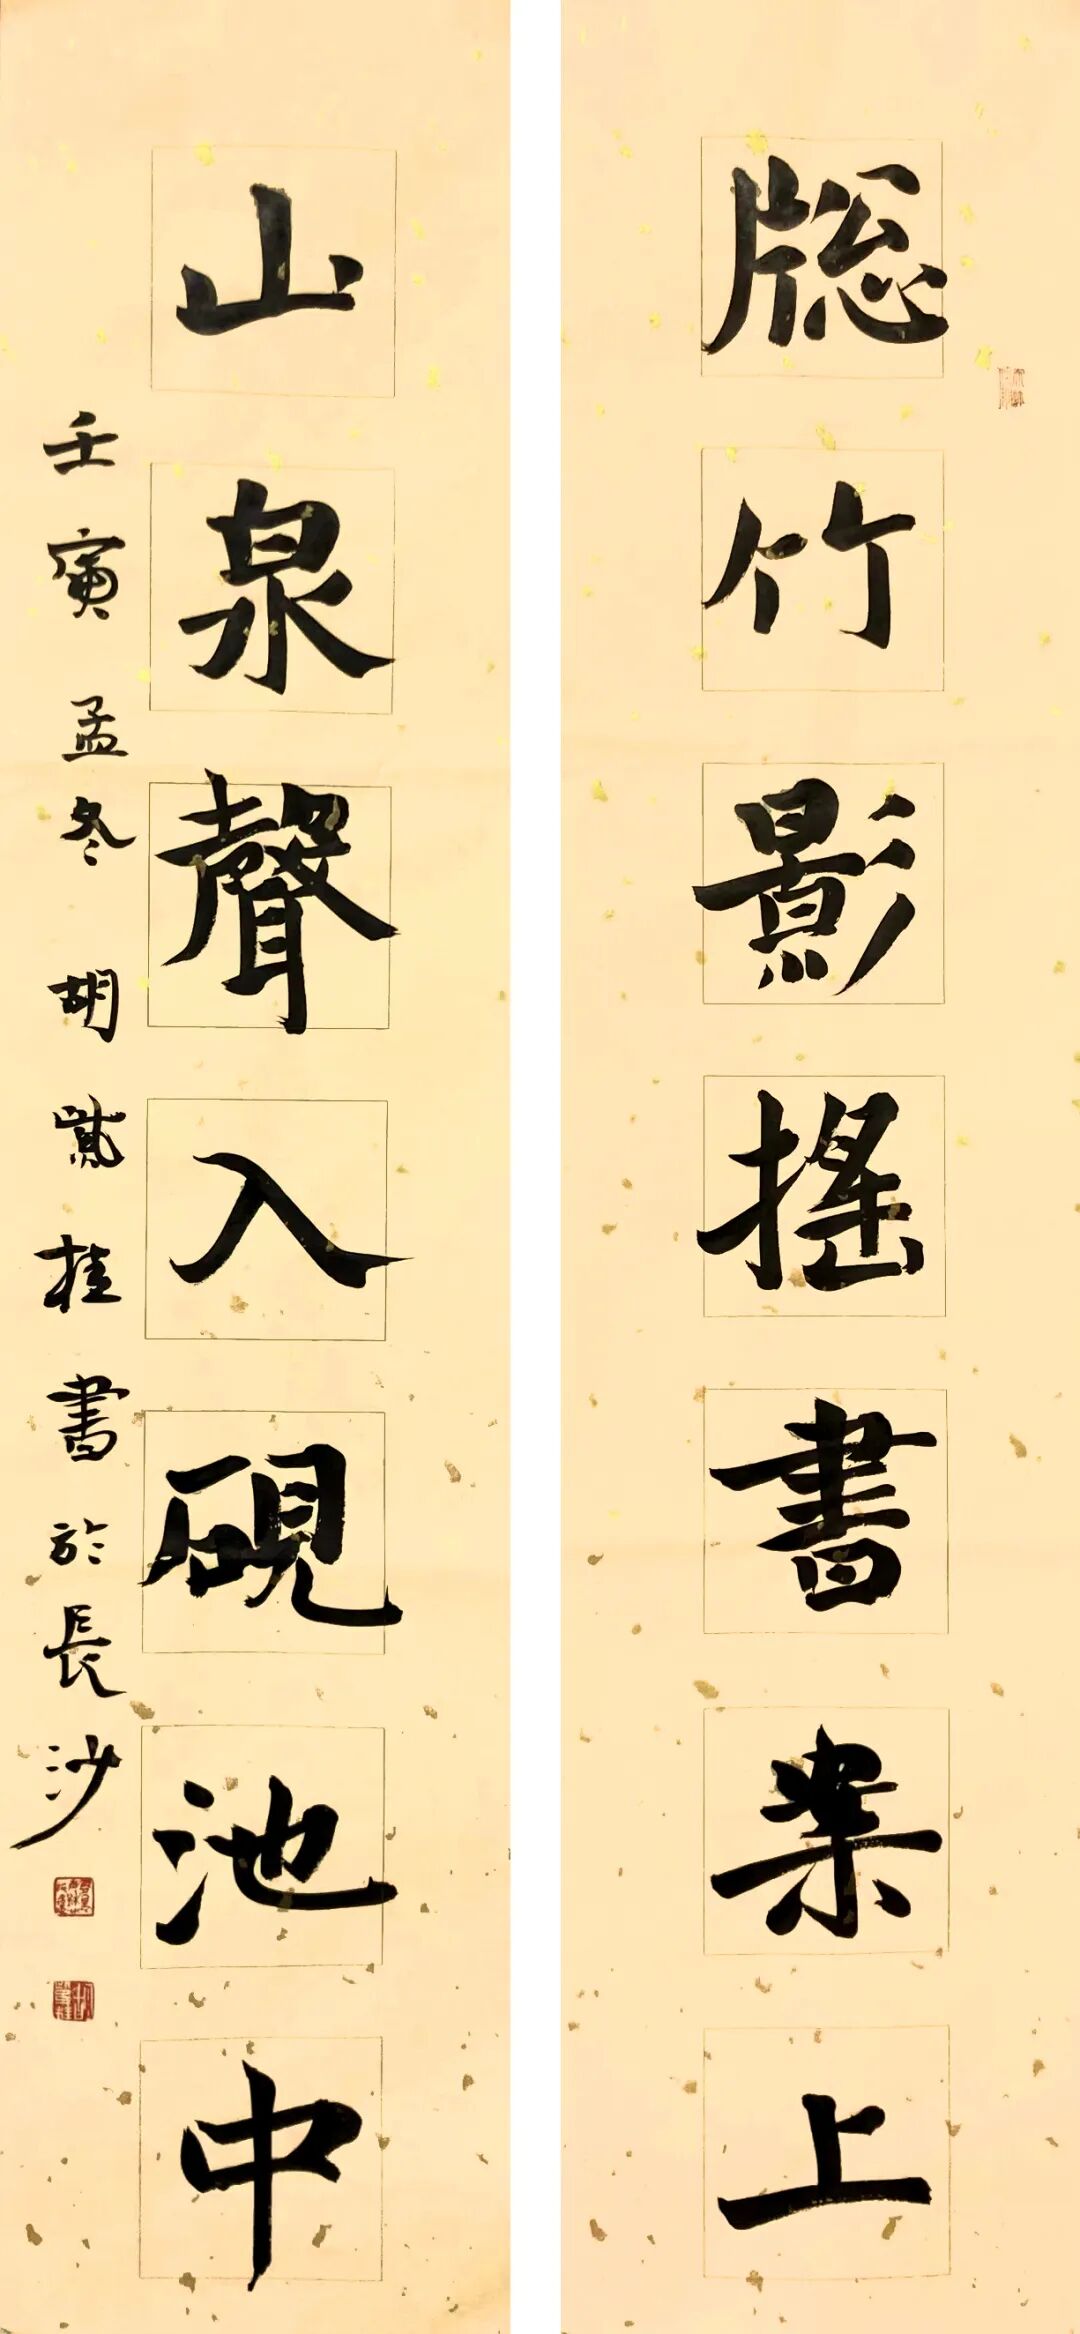 牕竹影搖書案上
山泉聲入硯池中
壬寅孟冬胡紫桂書於長沙